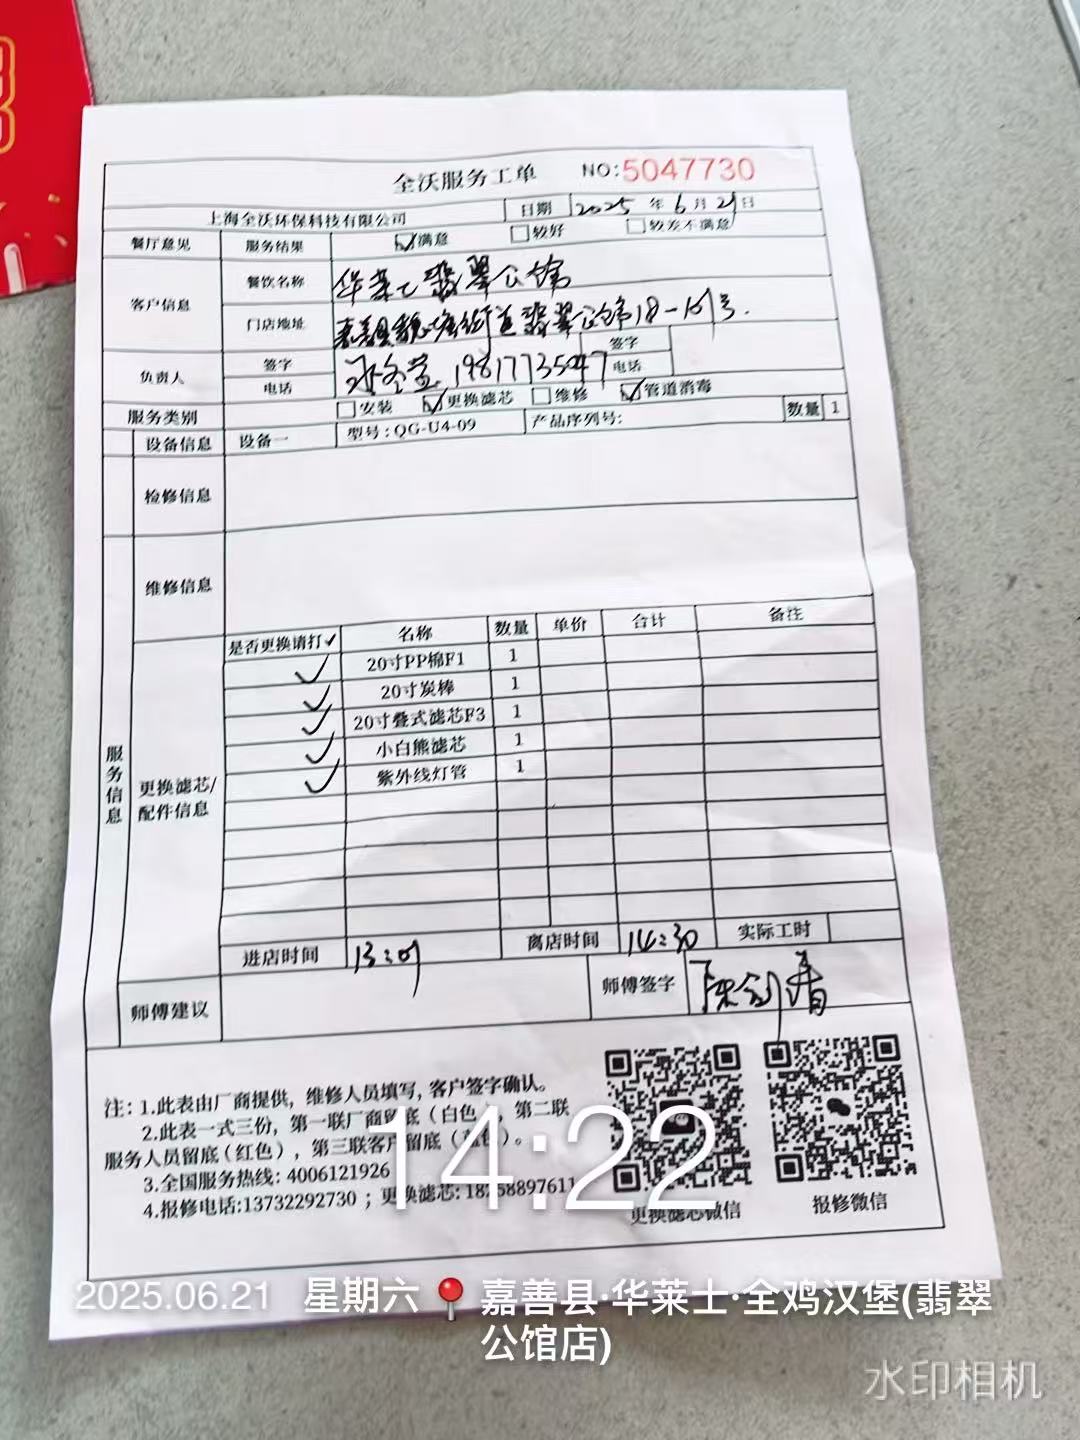 全沃服务工单 NO:5047730
上海全沃环保科技有限公司 日期 2025 年 6 月 21 日
餐厅意见 服务结果 满意 较好 较差不满意
客户信息 餐饮名称 华莱士翡翠公馆
门店地址 嘉善县魏塘街道翡翠公馆18-16号.
负责人 签字 签字
电话 19817735047 电话
服务类别 安装 更换滤芯 维修 管道消毒
设备信息 设备一 型号:QG-U4-09 产品序列号: 数量 1
检修信息
维修信息
是否更换请打✓ 名称 数量 单价 合计 备注
✓ 20寸PP棉F1 1
✓ 20寸炭棒 1
✓ 20寸叠式滤芯F3 1
✓ 小白熊滤芯 1
✓ 紫外线灯管 1
服务信息
更换滤芯/
配件信息
进店时间 离店时间 14:30 实际工时
师傅建议 师傅签字
注:1.此表由厂商提供,维修人员填写,客户签字确认。
2.此表一式三份,第一联厂商留底(白色),第二联
服务人员留底(红色),第三联客户留底( 色)。
3.全国服务热线: 4006121926
4.报修电话:13732292730 ; 更换滤芯:18258897611
更换滤芯微信 报修微信
14:22
2025.06.21 星期六 嘉善县·华莱士·全鸡汉堡(翡翠
公馆店)
水印相机